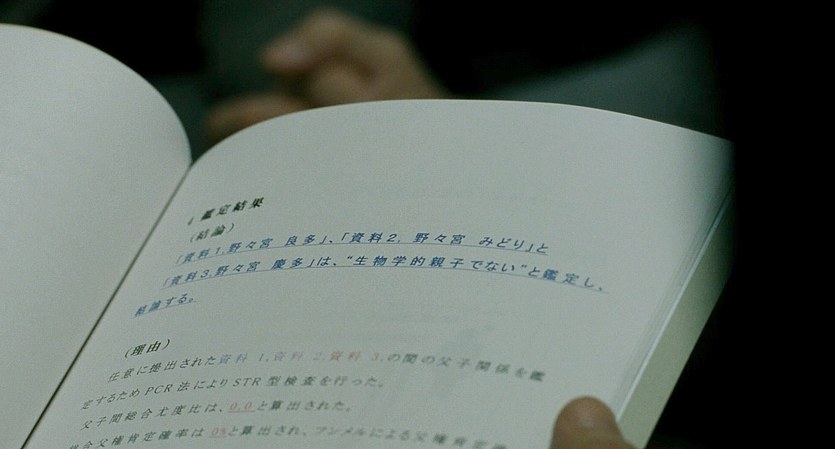 4 鑑定結果
(結論)
「資料1,野々宮 良多」、「資料2, 野々宮 みどり」と
「資料3,野々宮 慶多」は、“生物学的親子でない”と鑑定し、
結論する。
(理由)
任意に提出された資料 1,資料 2,資料 3,の間の父子関係を鑑
定するためPCR法によりSTR型検査を行った。
父子間総合尤度比は、0.0と算出された。
合父権肯定確率は 0%と算出され、フンメルによる父権肯定